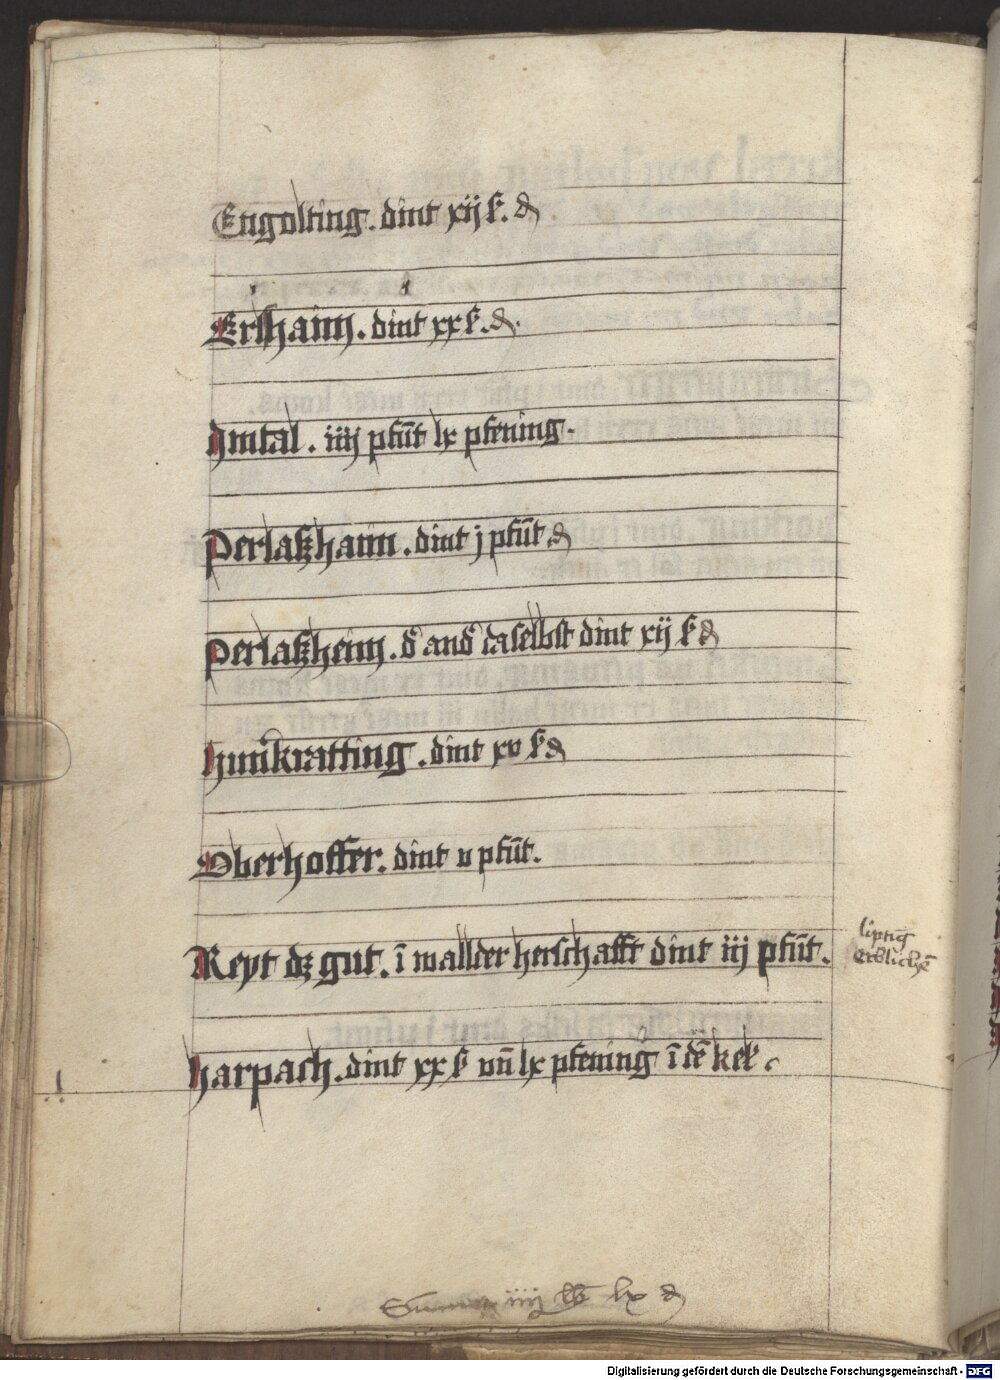 Engolting . dint xij ß. ₰
Erlhaim . dint xx ß. ₰.
Hintal . iiij pfūt lx pfening .
Perlaßhaim . dint j pfūt ₰
Perlaßheim . d' and' daselbst dint xij ß ₰
Hun̄kratting . dint xv ß ₰
Oberhoffer . dint v pfūt .
Reyt dz gut . ī wallder herschafft dint iij pfūt .
liptig
erblichē
Harpach . dint xx ß vn̄ lx pfening ī dē
Summa iiij lx ₰
Digitalisierung gefördert durch die Deutsche Forschungsgemeinschaft - DFG